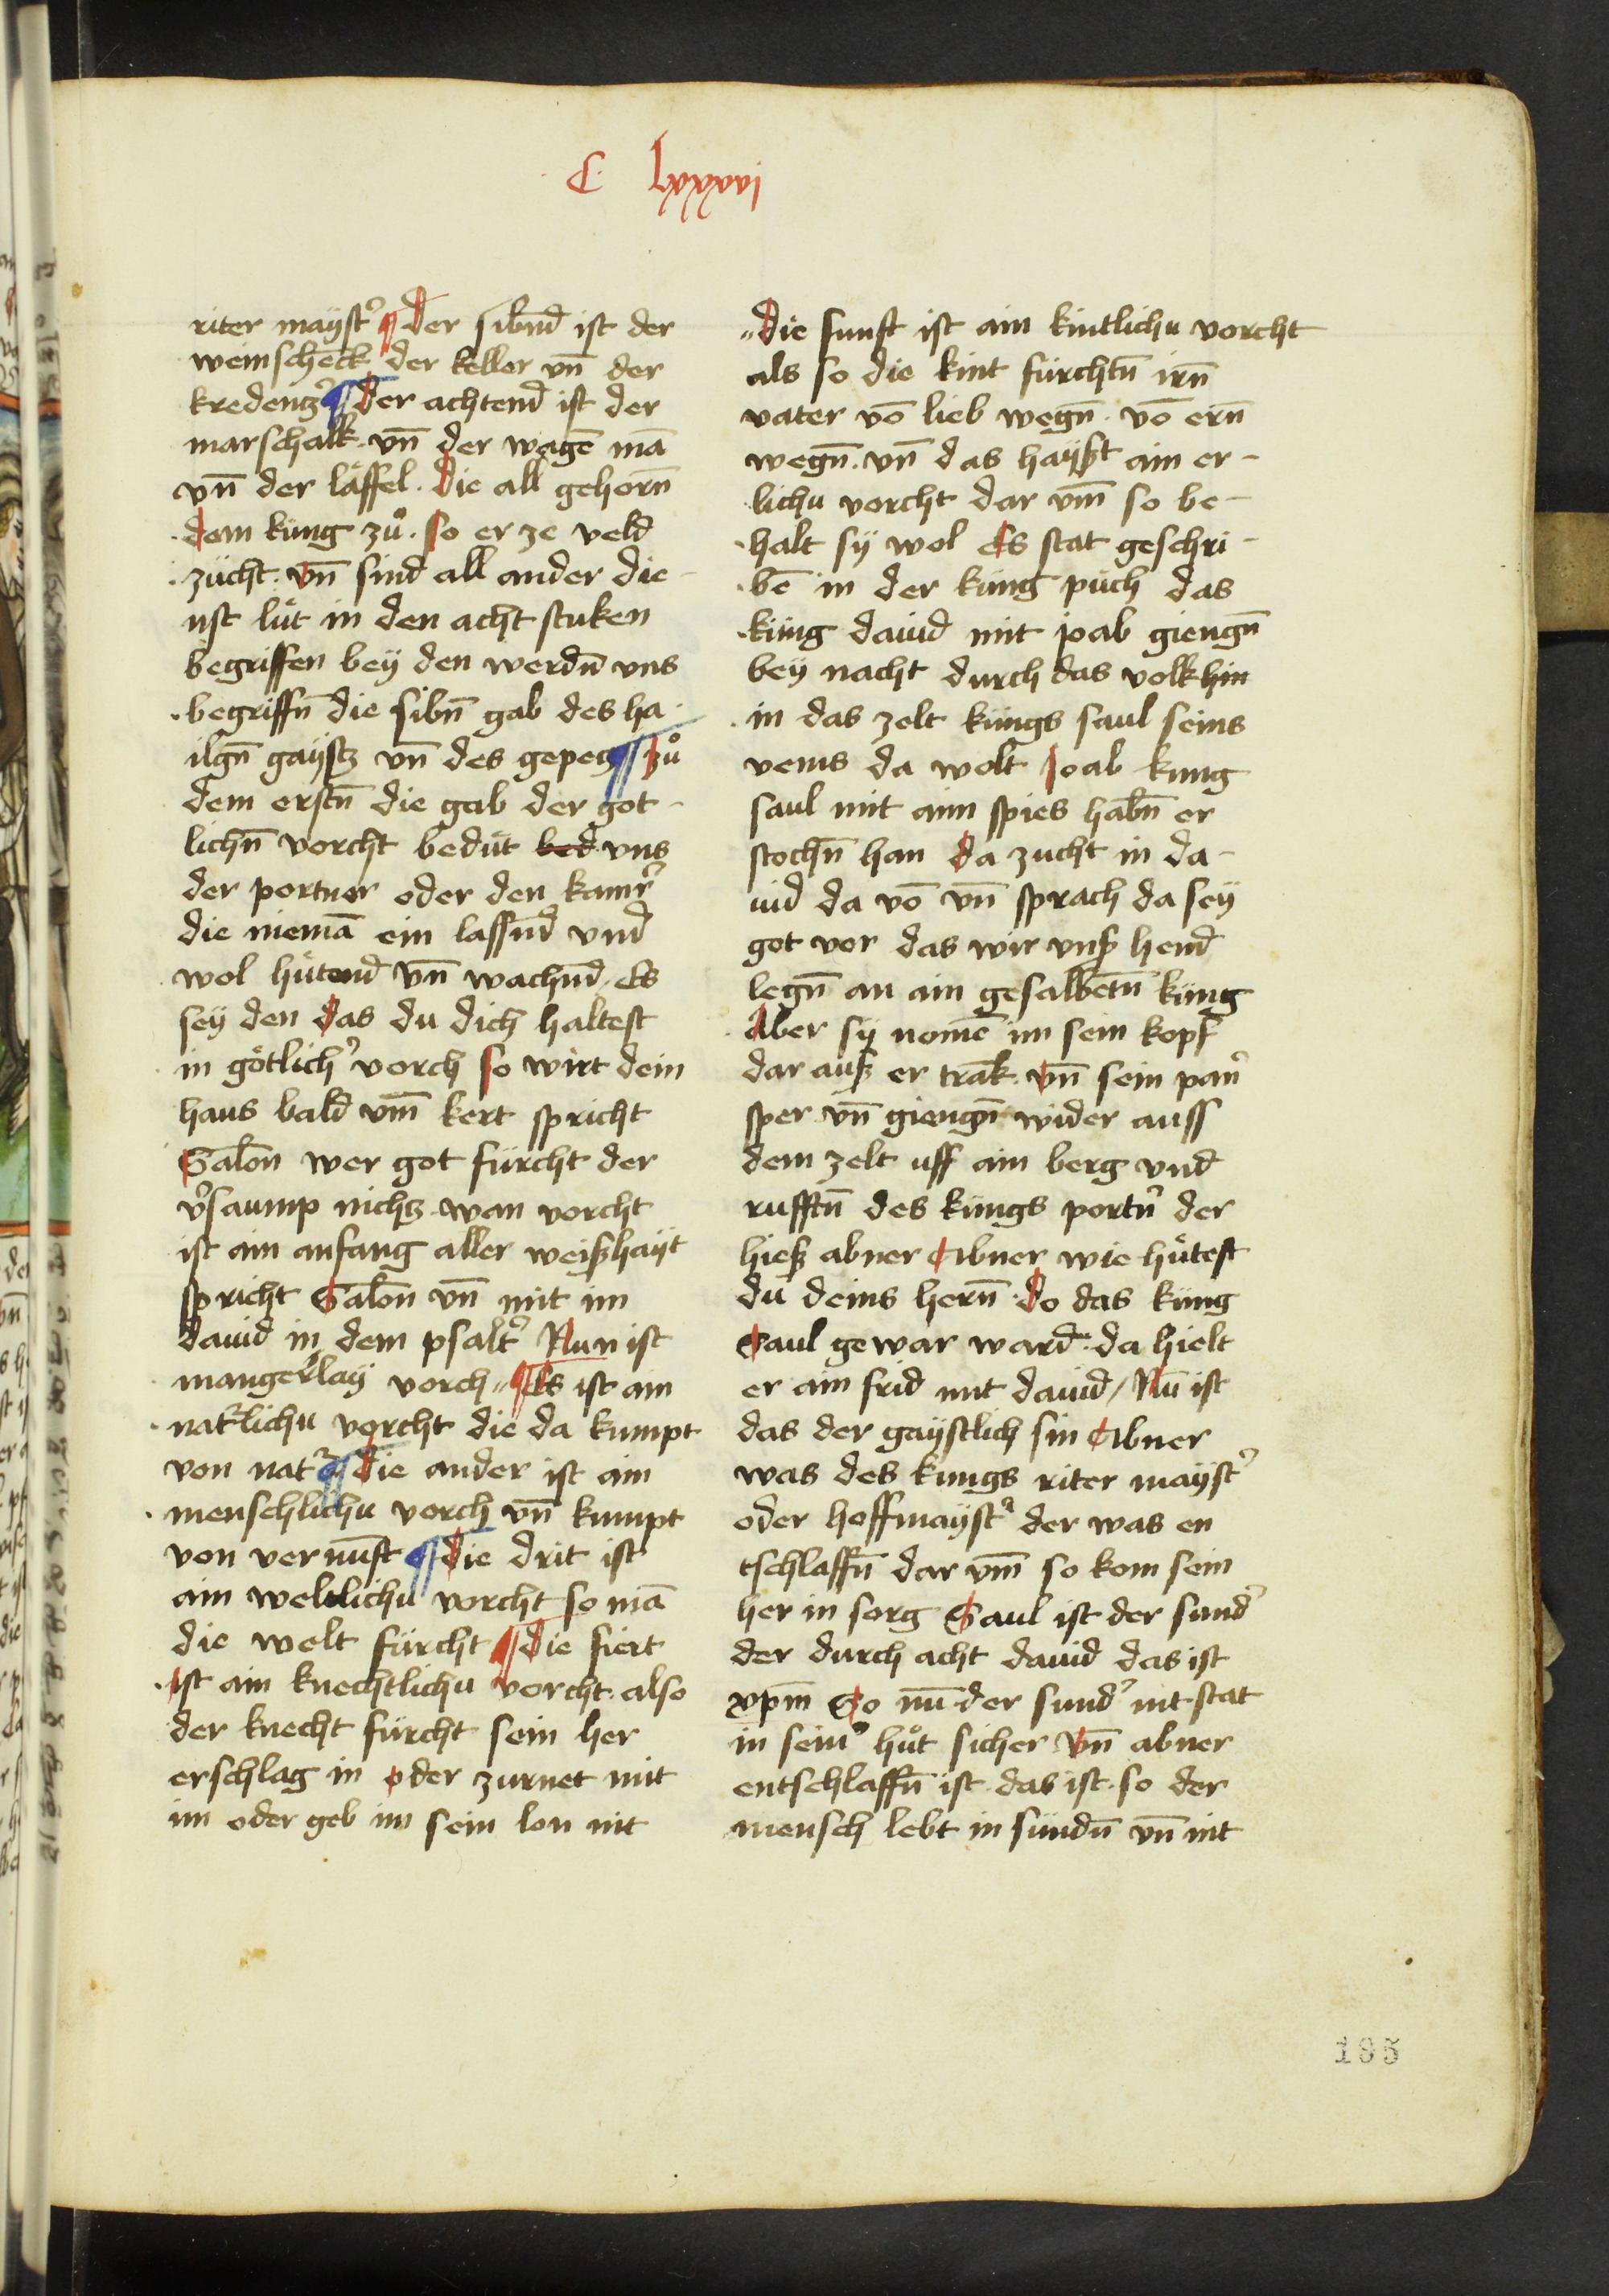 C lxxxvi
riter mayst͛ ¶ Der sibn̄d ist der
weinschēck der keller vn̄ der
kredentz͛ ¶ Der achtend ist der
marschalk. vn̄ der wagē mā
vn̄ der läffel. Die all gehorn̄
dem küng zů. so er ze veld
zücht. vn̄ sind all ander die-
nst lüt in den acht stuken
begriffen bey den werdn̄ vns
begriffn̄ die sibn̄ gab des ha-
ilgn̄ gaystz vn̄ des gepetz ¶ zů
dem erstn̄ die gab der got-
lichn̄ vorcht bedüt bed vns
der portner oder den kamr͛
die niemā ein lassn̄d vnd
wol hütend vn̄ wachn̄d Es
sey den das du dich haltest
in götlich͛ vorch so wirt dein
haus bald vm̄ kert spricht
Salon̄ wer got fürcht der
v͛saump nichtz wan vorcht
ist ain anfang aller weißhayt
spricht Salon̄ vn̄ mit im
dauid in dem psalt͛ Nun ist
mangerlay vorch ¶ Es ist ain
nat͛lichu vorcht die da kumpt
von nat͛ ¶ Die ander ist ain
menschlichu vorch vn̄ kumpt
von vernūft ¶ Die drit ist
ain weltlichu vorcht so mā
die welt fürcht ¶ Die fiert
ist ain knechtlichu vorcht. also
der knecht fürcht sein her
erschlag in oder zurnet mit
im oder geb im sein lon nit
Die funft ist ain kintlichu vorcht
als so die kint fürchtn̄ irn̄
vater vō lieb wegn̄. vō ern̄
wegn̄. vn̄ das hayßt ain er-
lichu vorcht dar vm̄ so be-
halt sy wol Es stat geschri-
bē in der küng püch das
küng dauid mit joab giengn̄
bey nacht durch das volk hin
in das zelt küngs saul seins
veins da wolt Joab kung
saul mit aim spies habn̄ er
stochn̄ han Da zucht in da-
uid da vō vn̄ sprach da sey
got vor das wir vnß hend
legn̄ an ain gesalbetn̄ küng
Aber sy nomē im sein kopf
dar auß er trāk. vn̄ sein pan͛
sper vn̄ giengn̄ wider auss
dem zelt uff ain berg vnd
rufftn̄ des küngs portn͛ der
hieß abner Abner wie hütest
du deins hern̄. Do das küng
Saul gewar ward. da hielt
er ain frid mit dauid / Nū ist
das der gaystlich sin Abner
was des kungs riter mayst͛
oder hoffmayst͛ der was en
tschlaffn̄ dar vm̄ so kom sein
her in sorg Saul ist der sund͛
der durch acht dauid das ist
xpm̄ So nū der sund͛ nit stat
in sein͛ hůt sicher vn̄ abner
entschlaffn̄ ist. das ist. so der
mensch lebt in sündn̄ vn̄ nit
195